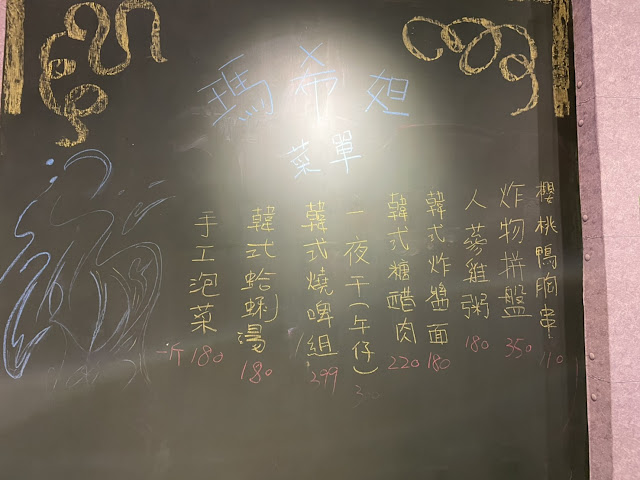 瑪希妲
菜單
櫻桃鴨胸串 110
炸物拼盤 350
人蔘雞粥 180
韓式炸醬面 180
韓式糖醋肉 220
一夜干(午仔)
韓式燒啤組 299
韓式蛤蜊湯 180
手工泡菜 一斤180